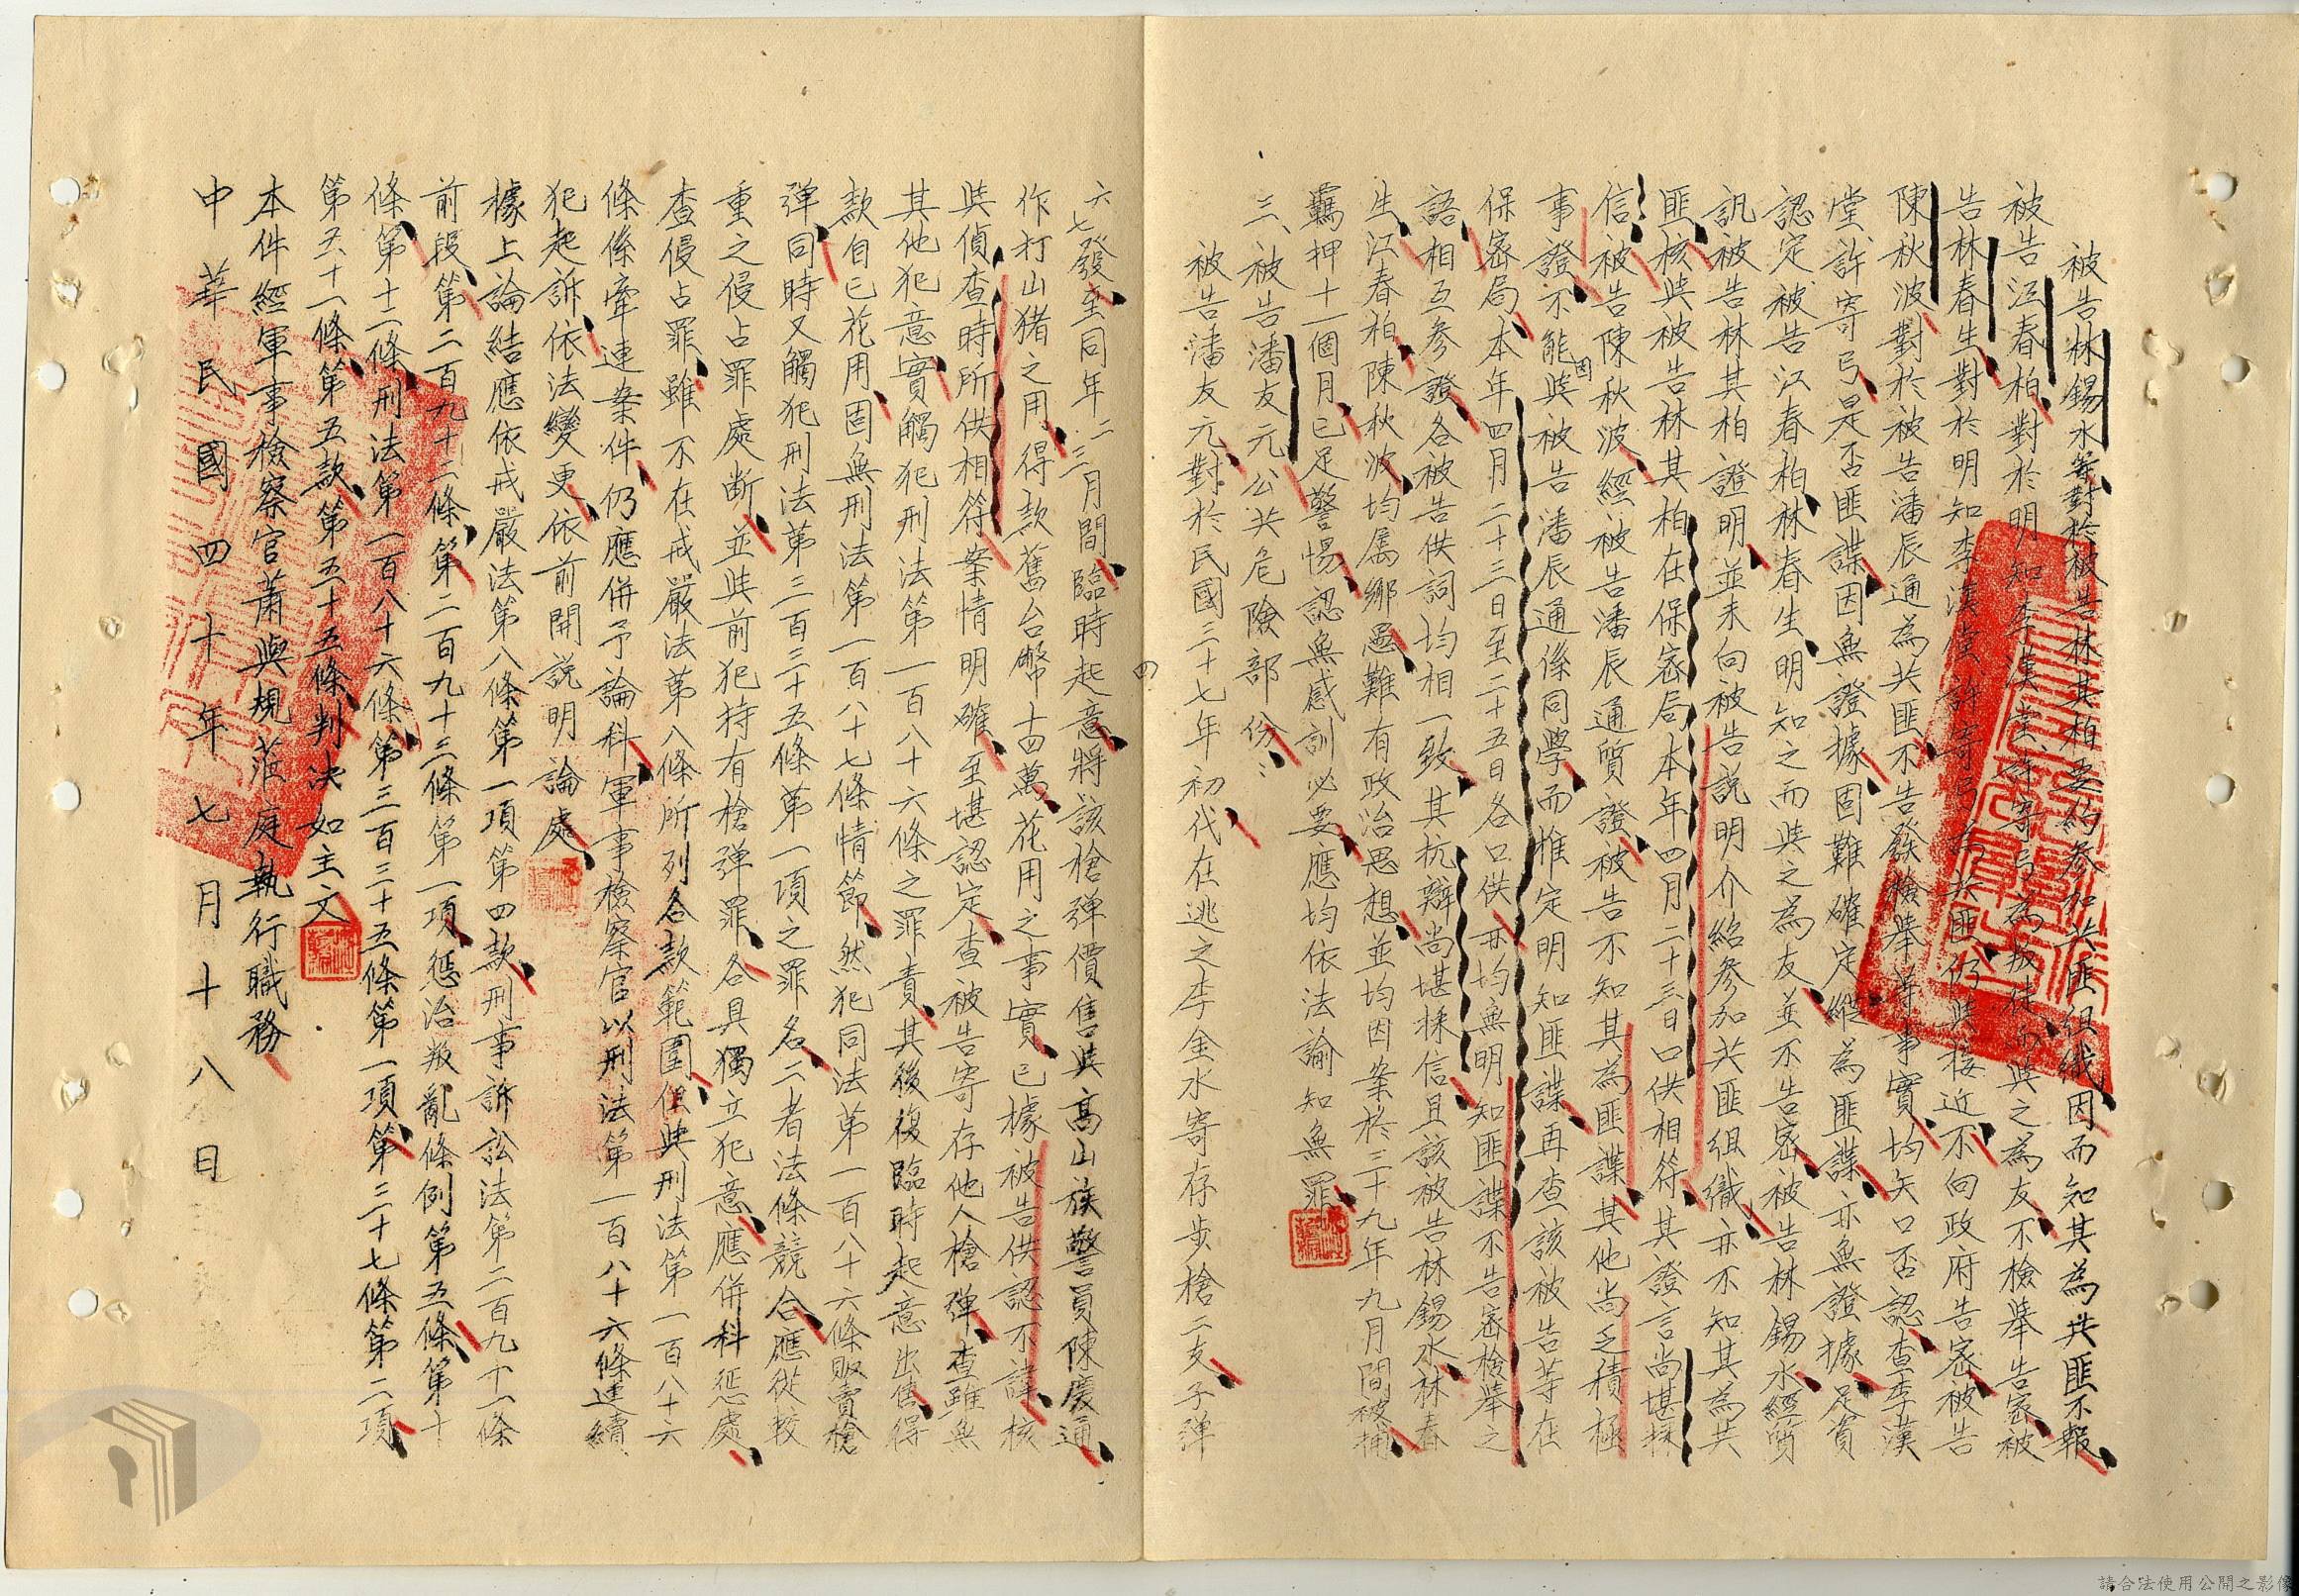 被告林錫水等對於被告林其柏要約參加共匪組織因而知其為共匪不報
被告江春柏對於明知李漢堂許寄弓為叛徒而與之為友不檢舉告密被
告林春生對於明知李漢堂許寄弓為共匪仍與接近不向政府告密被告
陳秋波對於被告潘辰通為共匪不告發檢舉等事實均矢口否認查李漢
堂許寄弓是否匪諜因無證據固難確定縱為匪諜亦無證據足資
認定被告江春柏林春生明知之而與之為友並不告密被告林錫水經質
訊被告林其柏證明並未向被告說明介紹參加共匪組織亦不知其為共
匪核與被告林其柏在保密局本年四月二十三日口供相符其證言尚堪採
信被告陳秋波經被告潘辰通質證被告不知其為匪諜其他尚乏積極
事證不能因與被告潘辰通係同學而推定明知匪諜再查該被告等在
保密局本年四月二十三日至二十五日各口供亦均無明知匪諜不告密檢舉之
語相互參證各被告供詞均相一致其抗辯尚堪採信且該被告林錫水林春
生江春柏陳秋波均屬鄉愚難有政治思想並均因案於三十九年九月間被捕
羈押十一個月已足警惕認無感訓必要應均依法諭知無罪
三、被告潘友元公共危險部份：
被告潘友元對於民國三十七年初代在逃之李金水寄存步槍二支子彈
四
六七發至同年二三月間臨時起意將該槍彈價售與高山族警員陳慶通
作打山猪之用得款舊台幣十四萬花用之事實已據被告供認不諱核
與偵查時所供相符案情明確至堪認定查被告寄存他人槍彈查雖無
其他犯意實觸犯刑法第一百八十六條之罪責其後復臨時起意出售得
款自己花用固無刑法第一百八十七條情節然犯同法第一百八十六條販賣槍
彈同時又觸犯刑法第三百三十五條第一項之罪名二者法條競合應從較
重之侵占罪處断並與前犯持有槍彈罪各具獨立犯意應併科懲處
查侵占罪雖不在戒嚴法第八條所列各款範圍但與刑法第一百八十六
條係牽連案件仍應併予論科軍事檢察官以刑法第一百八十六條連續
犯起訴依法變更依前開說明論處
據上論結應依戒嚴法第八條第一項第四款刑事訴訟法第二百九十一條
前段第二百九十二條第二百九十三條第一項懲治叛亂條例第五條第十
條第十二條刑法第一百八十六條第三百三十五條第一項第三十七條第二項
第五十一條第五款第五十五條判决如主文
本件經軍事檢察官蕭與規蒞庭執行職務
中華民國四十年七月十八日
請合法使用公開之影像